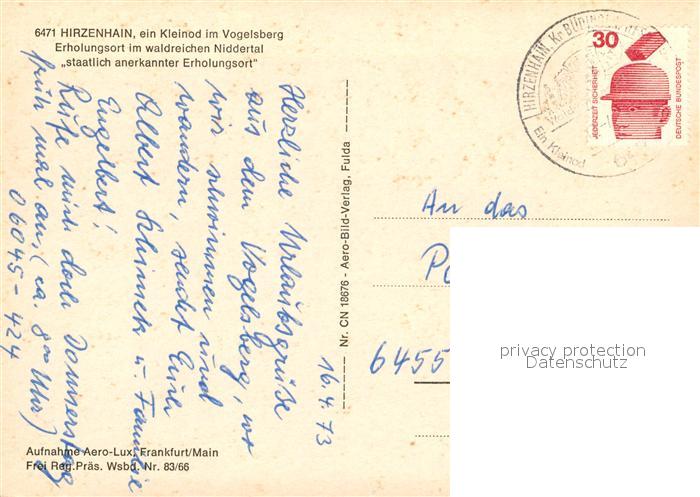 6471 HIRZENHAIN, ein Kleinod im Vogelsberg
Erholungsort im waldreichen Niddertal
„staatlich anerkannter Erholungsort"
16.4.73
Herzliche Urlaubsgrüße
aus dem Vogelsberg, wo
wir schwimmen und
wandern, sendet Euer
Albert u. Familie
Engelbert!
Rufe mich doch Donnerstag
früh mal an, (ca. 8⁰⁰ Uhr)
06045-424
Aufnahme Aero-Lux, Frankfurt/Main
Frei Reg.Präs. Wsbd. Nr. 83/66
Nr. CN 18676 - Aero-Bild-Verlag, Fulda
HIRZENHAIN, Kr BÜDINGEN
Ein Kleinod
30
JEDERZEIT SICHERHEIT
DEUTSCHE BUNDESPOST
An das
6455
privacy protection
Datenschutz